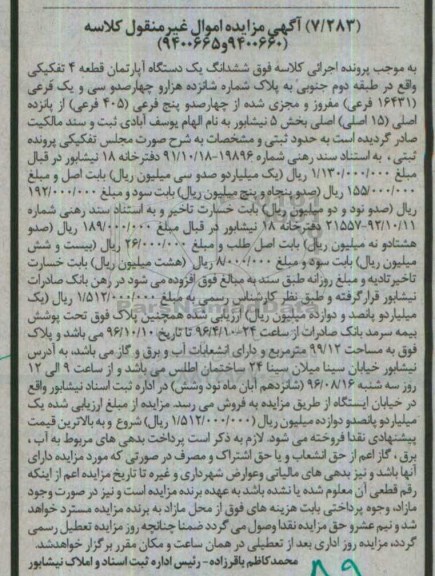 (۷/۲۸۳) آگهی مزایده اموال غیرمنقول کلاسه
(۹۴۰۰۶۶۰و۹۴۰۰۶۶۵)
به موجب پرونده اجرائی کلاسه فوق ششدانگ یک دستگاه آپارتمان قطعه ۴ تفکیکی
واقع در طبقه دوم جنوبی به پلاک شماره شانزده هزارو چهارصدو سی و یک فرعی
(۱۶۴۳۱ فرعی) مفروز و مجزی شده از چهارصدو پنج فرعی (۴۰۵ فرعی) از پانزده
اصلی (۱۵ اصلی) اصلی بخش ۵ نیشابور به نام الهام یوسف آبادی ثبت و سند مالکیت
صادر گردیده است به حدود ثبتی و مشخصات به شرح صورت مجلس تفکیکی پرونده
ثبتی ، به استناد سند رهنی شماره ۱۹۸۹۶-۹۱/۱۰/۱۸ دفترخانه ۱۸ نیشابور در قبال
مبلغ ۱/۱۳۰/۰۰۰/۰۰۰ ریال (یک میلیاردو صدو سی میلیون ریال) بابت اصل و مبلغ
۱۵۵/۰۰۰/۰۰۰ ریال (صدو پنجاه و پنج میلیون ریال) بابت سود و مبلغ ۱۹۲/۰۰۰/۰۰۰
ریال (صدو نود و دو میلیون ریال) بابت خسارت تاخیر و به استناد سند رهنی شماره
۲۱۵۵۷-۹۲/۱۰/۱۱ دفترخانه ۱۸ نیشابور در قبال مبلغ ۱۸۹/۰۰۰/۰۰۰ ریال (صدو
هشتادو نه میلیون ریال) بابت اصل طلب و مبلغ ۲۶/۰۰۰/۰۰۰ ریال (بیست و شش
میلیون ریال) بابت سود و مبلغ ۸/۰۰۰/۰۰۰ ریال (هشت میلیون ریال) بابت خسارت
تاخیر تادیه و مبلغ روزانه طبق سند به مبالغ فوق افزوده می شود در رهن بانک صادرات
نیشابور قرار گرفته و طبق نظر کارشناس رسمی به مبلغ ۱/۵۱۲/۰۰۰/۰۰۰ ریال (یک
میلیاردو پانصد و دوازده میلیون ریال) ارزیابی شده همچنین پلاک فوق تحت پوشش
بیمه سرمد بانک صادرات از ساعت ۲۴-۹۶/۴/۱۰ تا تاریخ ۹۶/۱۰/۱۰ می باشد و پلاک
فوق به مساحت ۹۹/۱۲ مترمربع و دارای انشعابات آب و برق و گاز می باشد، به آدرس
نیشابور خیابان سینا میلان سینا ۲۴ ساختمان اطلس می باشد و از ساعت ۹ الی ۱۲
روز سه شنبه ۹۶/۰۸/۱۶ (شانزدهم آبان ماه نود وشش) در اداره ثبت اسناد نیشابور واقع
در خیابان ایستگاه از طریق مزایده به فروش می رسد. مزایده از مبلغ ارزیابی شده یک
میلیاردو پانصدو دوازده میلیون ریال (۱/۵۱۲/۰۰۰/۰۰۰ ریال) شروع و به بالاترین قیمت
پیشنهادی نقدا فروخته می شود. لازم به ذکر است پرداخت بدهی های مربوط به آب ،
برق ، گاز اعم از حق انشعاب و یا حق اشتراک و مصرف در صورتی که مورد مزایده دارای
آنها باشد و نیز بدهی های مالیاتی وعوارض شهرداری و غیره تا تاریخ مزایده اعم از اینکه
رقم قطعی آن معلوم شده یا نشده باشد به عهده برنده مزایده است و نیز در صورت وجود
مازاد، وجوه پرداختی بابت هزینه های فوق از محل مازاد به برنده مزایده مسترد خواهد
شد و نیم عشرو حق مزایده نقدا وصول می گردد ضمنا چنانچه روز مزایده تعطیل رسمی
گردد، مزایده روز اداری بعد از تعطیلی در همان ساعت و مکان مقرر برگزار خواهدشد.
محمدکاظم باقرزاده - رئیس اداره ثبت اسناد و املاک نیشابور